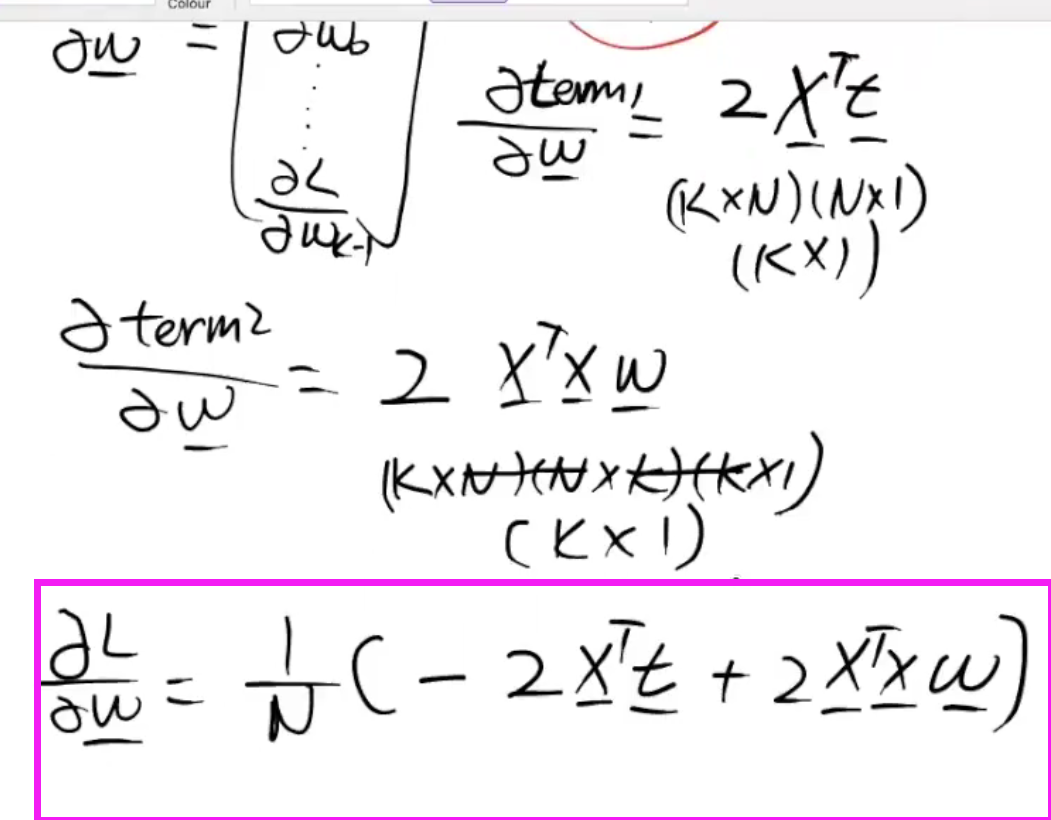 Colour
∂w = ∂w₀
⋮
∂L
∂w_{K-1}
∂term1 / ∂w = 2 Xᵀt
(K×N)(N×1)
(K×1)
∂term2 / ∂w = 2 XᵀX w
(K×N)(N×K)(K×1)
(K×1)
∂L / ∂w = 1/N ( - 2 Xᵀt + 2 XᵀX w )